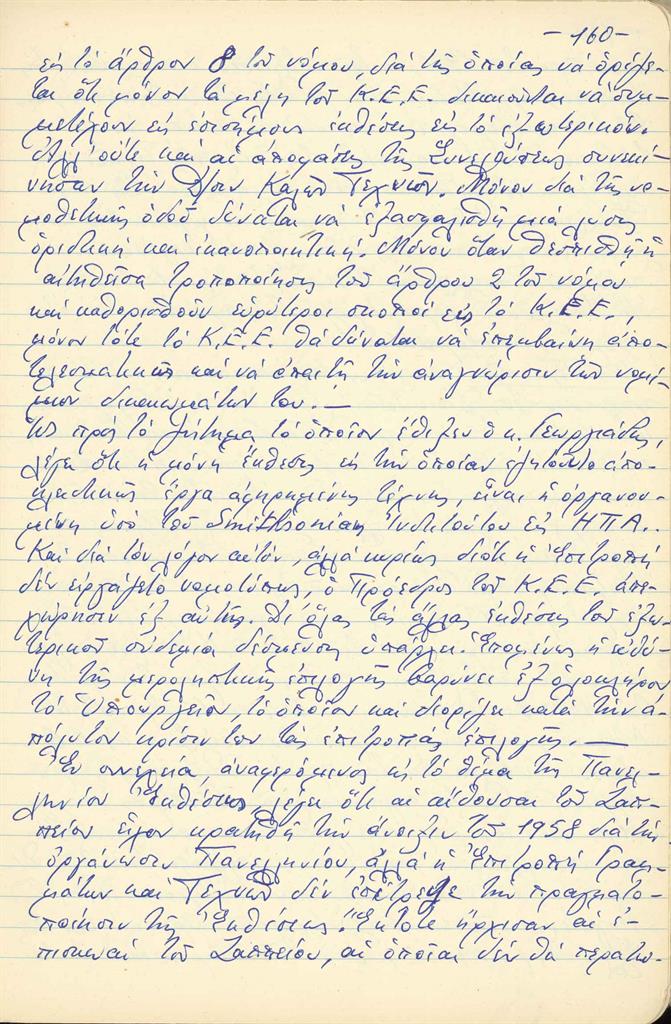 -160-
εις το άρθρον 8 του νόμου, διά της οποίας να ορίζε-
ται ότι μόνον τα μέλη του Κ.Ε.Ε. δικαιούνται να συμ-
μετέχουν εις επισήμους εκθέσεις εις το εξωτερικόν.
Αλλ' ούτε και αι αποφάσεις της Συνελεύσεως συνεκί-
νησαν την Δ/σιν Καλών Τεχνών. Μόνον διά της νο-
μοθετικής οδού δύναται να εξασφαλισθή μιά λύσις
οριστική και ικανοποιητική. Μόνον όταν θεσπισθή η
αιτηθείσα τροποποίησις του άρθρου 2 του νόμου
και καθορισθούν ευρύτεροι σκοποί εις το Κ.Ε.Ε.,
μόνον τότε το Κ.Ε.Ε. θα δύναται να επεμβαίνη απο-
τελεσματικώς και να απαιτή την αναγνώρισιν των νομί-
μων δικαιωμάτων του.—
Ως προς το ζήτημα το οποίον έθιξεν ο κ. Γεωργιάδης,
λέγει ότι η μόνη έκθεσις εις την οποίαν εζητούντο απο-
κλειστικώς έργα αφηρημένης τέχνης, είναι η οργανου-
μένη υπό του Smithsonian Ινστιτούτου εις ΗΠΑ..
Και διά τον λόγον αυτόν, αλλά κυρίως διότι η Επιτροπή
δεν ειργάζετο νομοτύπως, ο Πρόεδρος του Κ.Ε.Ε. απε-
χώρησεν εξ αυτής. Δι' όλας τας άλλας εκθέσεις του εξω-
τερικού ουδεμία δέσμευσις υπάρχει. Επομένως η ευθύ-
νη της μεροληπτικής επιλογής βαρύνει εξ ολοκλήρου
το Υπουργείον, το οποίον και διορίζει κατά την α-
πόλυτον κρίσιν του τας επιτροπάς επιλογής.—
Εν συνεχεία, αναφερόμενος εις το θέμα της Πανελ-
ληνίου Εκθέσεως, λέγει ότι αι αίθουσαι του Ζαπ-
πείου είχον κρατηθή την άνοιξιν του 1958 διά την
οργάνωσιν Πανελληνίου, αλλά η Επιτροπή Γραμ-
μάτων και Τεχνών δεν επέτρεψε την πραγματο-
ποίησιν της Εκθέσεως. Έκτοτε ήρχισαν αι ε-
πισκευαί του Ζαππείου, αι οποίαι δεν θα περατω-